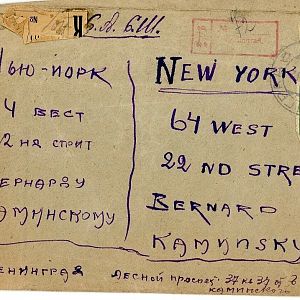 С.А.С.Ш.
НЬЮ-ЙОРК
64 ВЕСТ
22 НД СТРИТ
БЕРНАРДУ
КАМИНСКОМУ
NEW YORK
64 WEST
22 ND STRE
BERNARD
KAMINSKY
ЛЕНИНГРАД
ЛЕСНОЙ ПРОСПЕКТ 37
КАМИНСКОГО